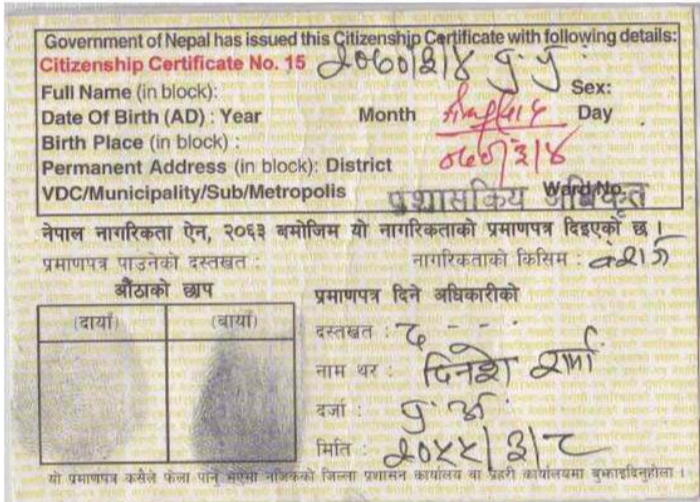 Government of Nepal has issued this Citizenship Certificate with following details:
Citizenship Certificate No. 15 २०६०|३|४ प्र.प्र.
Full Name (in block): Sex:
Date Of Birth (AD) : Year Month Day
Birth Place (in block) : ०६०|३|४
Permanent Address (in block): District
VDC/Municipality/Sub/Metropolis Ward No.
प्रशासकिय अधिकृत
नेपाल नागरिकता ऐन, २०६३ बमोजिम यो नागरिकताको प्रमाणपत्र दिइएको छ ।
प्रमाणपत्र पाउनेको दस्तखत : नागरिकताको किसिम : वंशज
औंठाको छाप प्रमाणपत्र दिने अधिकारीको
(दायाँ) (बायाँ)
दस्तखत : द
नाम थर : दिनेश शर्मा
दर्जा : प्र.अ.
मिति : २०५५|३|८
यो प्रमाणपत्र कसैले फेला पारे भएमा नजिकको जिल्ला प्रशासन कार्यालय वा प्रहरी कार्यालयमा बुझाइदिनुहोला ।